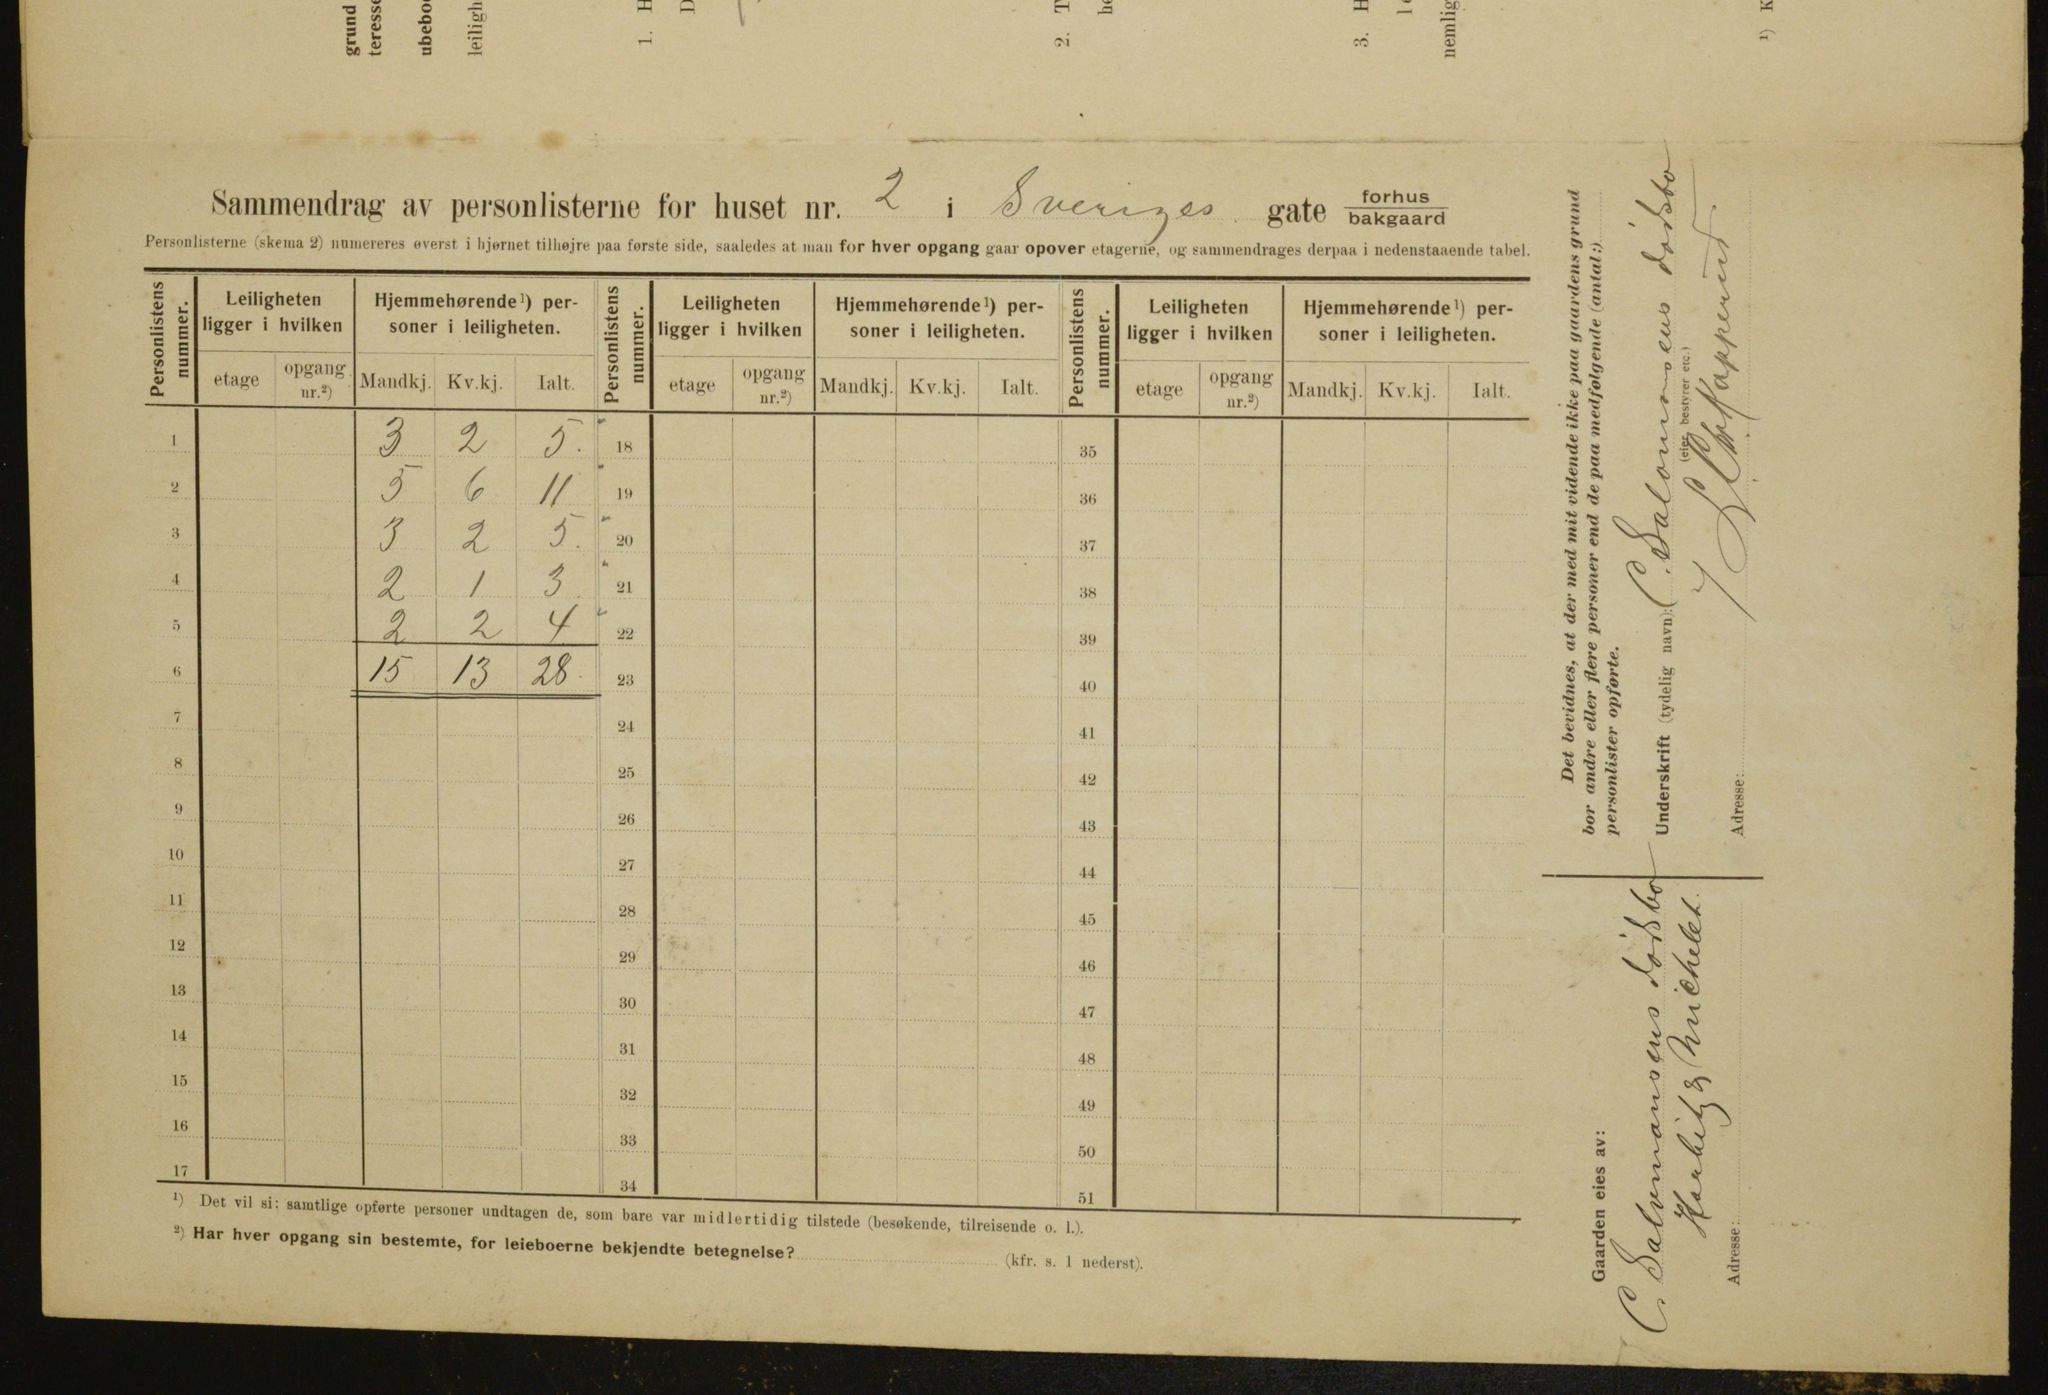 grund
teresse
ubeboe
leiligh
1. H
D
2. T
be
3. H
le
nemlig
1) K
Sammendrag av personlisterne for huset nr. 2 i Sveriges gate forhus
bakgaard
Personlisterne (skema 2) numereres øverst i hjørnet tilhøjre paa første side, saaledes at man for hver opgang gaar opover etagerne, og sammendrages derpaa i nedenstaaende tabel.
Personlistens nummer. Leiligheten ligger i hvilken Hjemmehørende¹) personer i leiligheten. Personlistens nummer. Leiligheten ligger i hvilken Hjemmehørende¹) personer i leiligheten. Personlistens nummer. Leiligheten ligger i hvilken Hjemmehørende¹) personer i leiligheten.
etage opgang nr.²) Mandkj. Kv.kj. Ialt. etage opgang nr.²) Mandkj. Kv.kj. Ialt. etage opgang nr.²) Mandkj. Kv.kj. Ialt.
1 3 2 5. 18 35
2 5 6 11 19 36
3 3 2 5. 20 37
4 2 1 3. 21 38
5 2 2 4 22 39
6 15 13 28. 23 40
7 24 41
8 25 42
9 26 43
10 27 44
11 28 45
12 29 46
13 30 47
14 31 48
15 32 49
16 33 50
17 34 51
¹) Det vil si: samtlige opførte personer undtagen de, som bare var midlertidig tilstede (besøkende, tilreisende o. l.).
²) Har hver opgang sin bestemte, for leieboerne bekjendte betegnelse? (kfr. s. 1 nederst).
Det bevidnes, at der med mit vidende ikke paa gaardens grund
bor andre eller flere personer end de paa medfølgende (antal:)
personlister opførte.
Underskrift (tydelig navn): C. Salomonsens dødsbo
(eier, bestyrer etc.)
Adresse:
Gaarden eies av:
C. Salomonsens dødsbo
Harbitz & Michelet.
Adresse: